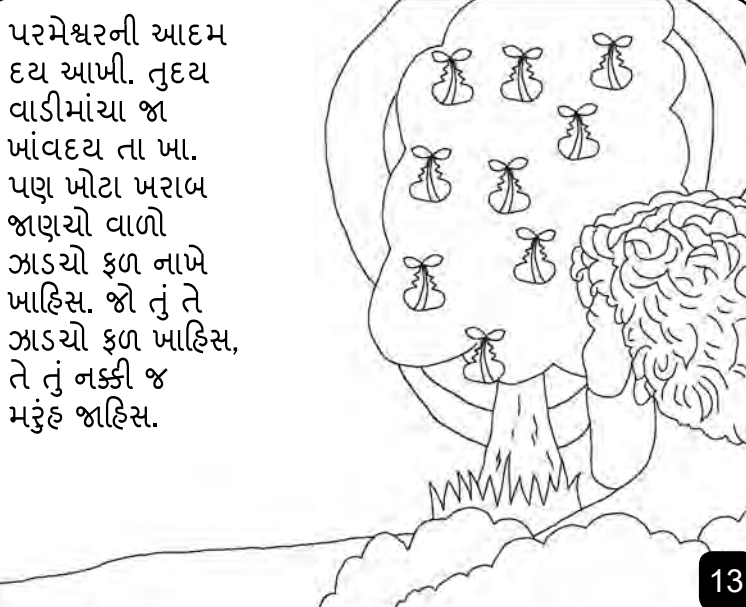 પરમેશ્વરની આદમ
દય આખી. તુદય
વાડીમાંચા જા
ખાંવદય તા ખા.
પણ ખોટા ખરાબ
જાણચો વાળો
ઝાડચો ફળ નાખે
ખાહિસ. જો તું તે
ઝાડચો ફળ ખાહિસ,
તે તું નક્કી જ
મરુંહ જાહિસ.
13